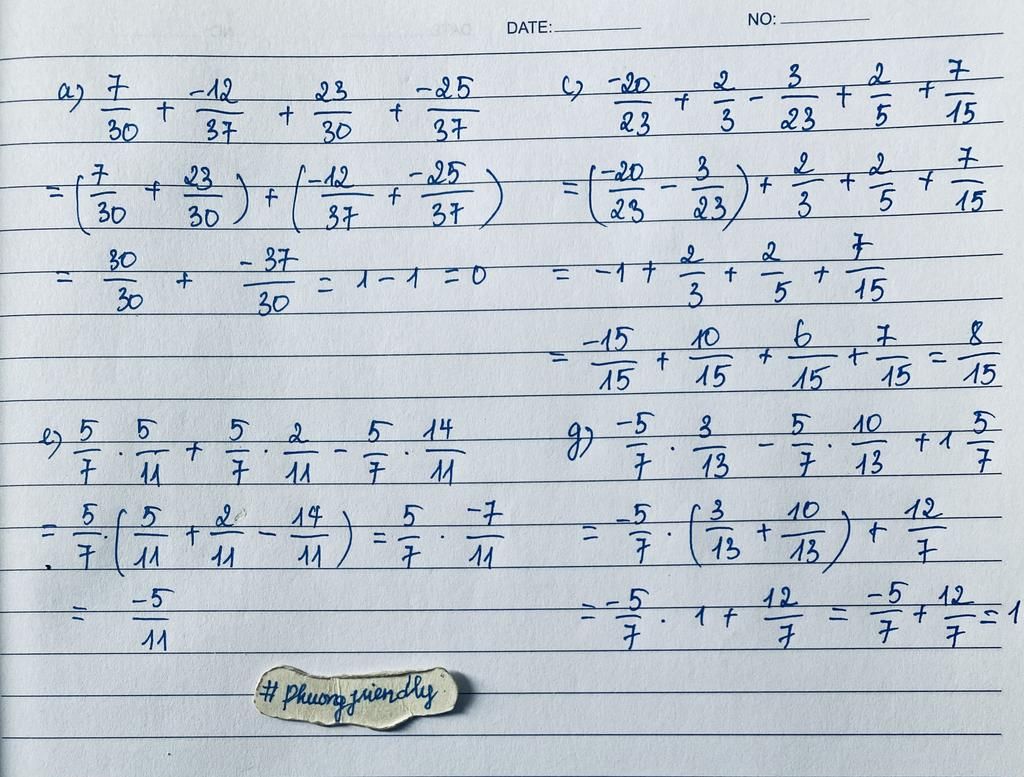 DATE: NO:
a) 7/30 + -12/37 + 23/30 + -25/37
= (7/30 + 23/30) + (-12/37 + -25/37)
= 30/30 + -37/30 = 1 - 1 = 0
c) -20/23 + 2/3 - 3/23 + 2/5 + 7/15
= (-20/23 - 3/23) + 2/3 + 2/5 + 7/15
= -1 + 2/3 + 2/5 + 7/15
= -15/15 + 10/15 + 6/15 + 7/15 = 8/15
e) 5/7 . 5/11 + 5/7 . 2/11 - 5/7 . 14/11
= 5/7 . (5/11 + 2/11 - 14/11) = 5/7 . -7/11
= -5/11
g) -5/7 . 3/13 - 5/7 . 10/13 + 1 5/7
= -5/7 . (3/13 + 10/13) + 12/7
= -5/7 . 1 + 12/7 = -5/7 + 12/7 = 1
#phuongfriendly